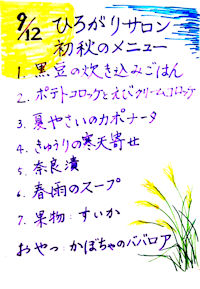 9/12 ひろがりサロン
初秋のメニュー
1. 黒豆の炊き込みごはん
2. ポテトコロッケとえびクリームコロッケ
3. 夏やさいのカポナータ
4. きゅうりの寒天寄せ
5. 奈良漬
6. 春雨のスープ
7. 果物:すいか
おやつ:かぼちゃのババロア